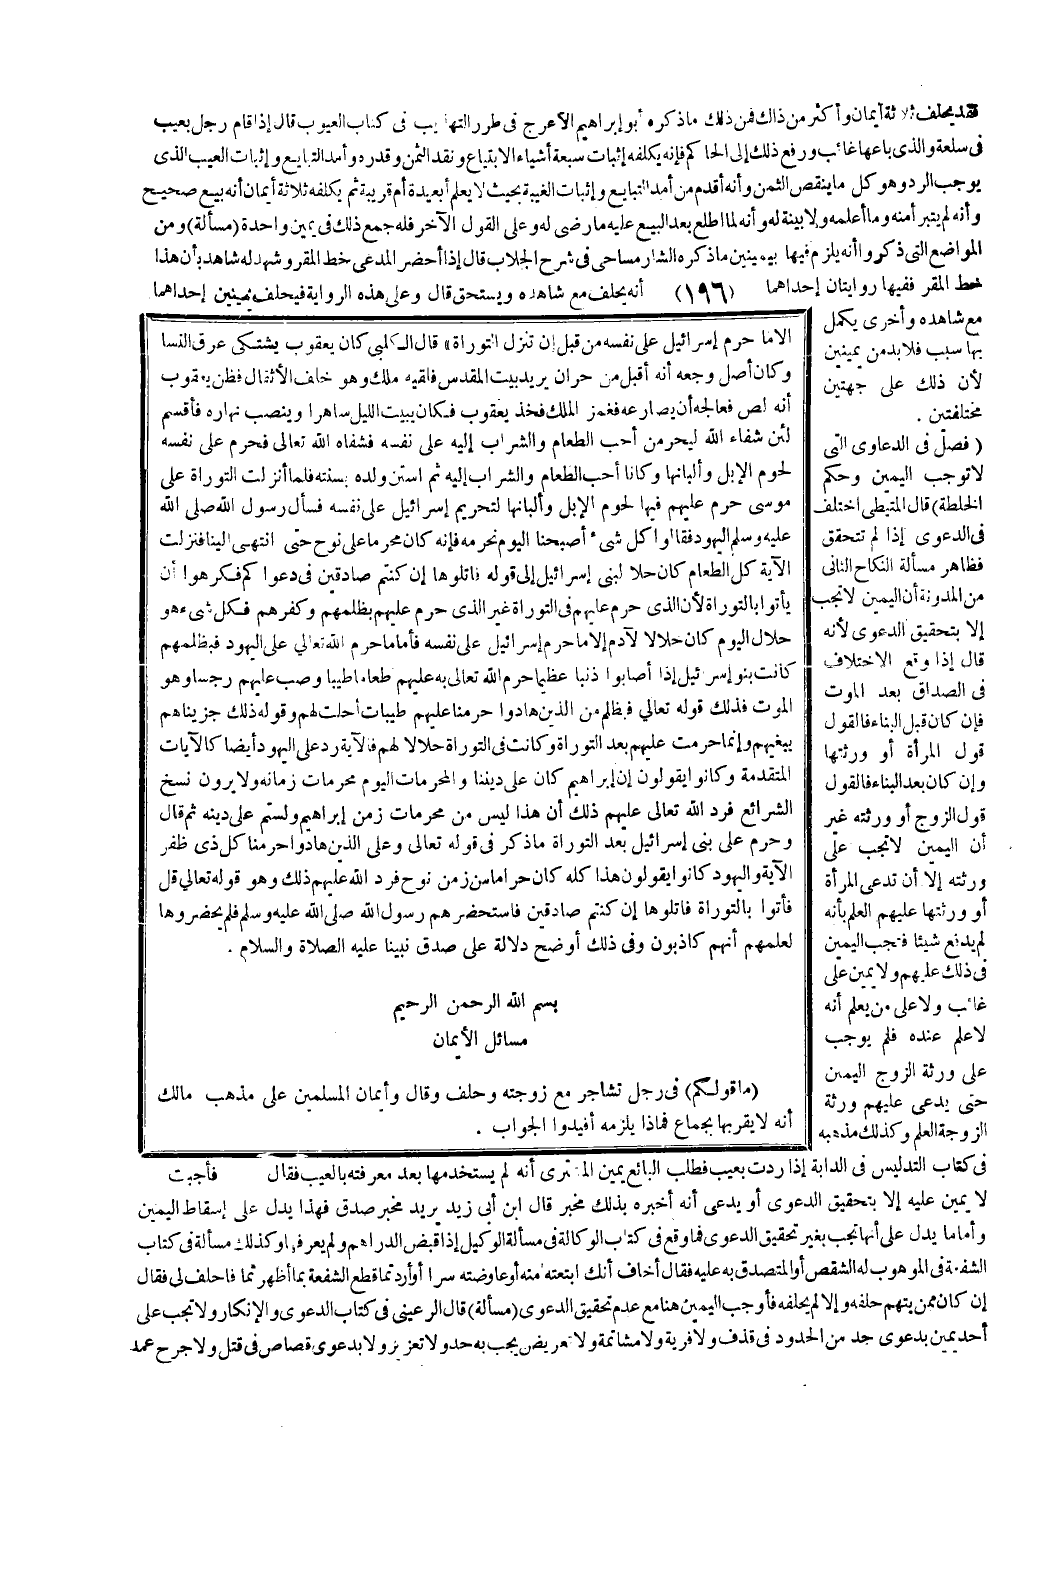 فقد يحلف ثلاثة أيمان وأكثر من ذلك فمن ذلك ماذكره أبو إبراهيم الأعرج فى طرر التهذيب فى كتاب العيوب قال إذا قام رجل بعيب
فى سلعة والذى باعها غائب ورفع ذلك إلى الحاكم فإنه يكلفه إثبات سبعة أشياء الابتياع ونقد الثمن وقدره وأمد التبايع وإثبات العيب الذى
يوجب الرد وهو كل ما ينقص الثمن وأنه أقدم من أمد التبايع وإثبات الغيبة بحيث لا يعلم أبعيدة أم قريبة ثم يكلفه ثلاثة أيمان أنه بيع صحيح
وأنه لم يتبرأ منه وما أعلمه ولا بينة له وأنه لما اطلع بعد البيع عليه ما رضى له وعلى القول الآخر فله جمع ذلك فى يمين واحدة (مسألة) ومن
المواضع التى ذكروا أنه يلزم فيها بيمينين ماذكره الشارمساحى فى شرح الجلاب قال إذا أحضر المدعى خط المقر وشهد له شاهد بأن هذا
خط المقر ففيها روايتان إحداهما (١٩٦) أنه يحلف مع شاهده ويستحق قال وعلى هذه الرواية فيحلف يمينين إحداهما
مع شاهده وأخرى يكمل
بها سبب فلا بد من يمينين
لأن ذلك على جهتين
مختلفتين .
( فصل فى الدعاوى التى
لا توجب اليمين وحكم
الخلطة) قال المتيطى اختلف
فى الدعوى إذا لم تتحقق
فظاهر مسألة النكاح الثانى
من المدونة أن اليمين لا تجب
إلا بتحقيق الدعوى لأنه
قال إذا وقع الاختلاف
فى الصداق بعد الموت
فإن كان قبل البناء فالقول
قول المرأة أو ورثتها
وإن كان بعد البناء فالقول
قول الزوج أو ورثته غير
أن اليمين لا تجب على
ورثته إلا أن تدعى المرأة
أو ورثتها عليهم العلم بأنه
لم يدفع شيئا فتجب اليمين
فى ذلك عليهم ولا يمين على
غائب ولا على من يعلم أنه
لا علم عنده فلم يوجب
على ورثة الزوج اليمين
حتى يدعى عليهم ورثة
الزوجة العلم وكذلك مذهبه
الا ما حرم إسرائيل على نفسه من قبل إن تنزل التوراة» قال الكلبى كان يعقوب يشتكى عرق النسا
وكان أصل وجعه أنه أقبل من حران يريد بيت المقدس فلقيه ملك وهو خلف الأثقال فظن يعقوب
أنه لص فعالجه أن يصارعه فغمز الملك فخذ يعقوب فكان يبيت الليل ساهرا وينصب نهاره فأقسم
لئن شفاء الله ليحرمن أحب الطعام والشراب إليه على نفسه فشفاه الله تعالى فحرم على نفسه
لحوم الإبل وألبانها وكانا أحب الطعام والشراب إليه ثم استن ولده بسنته فلما أنزلت التوراة على
موسى حرم عليهم فيها لحوم الإبل وألبانها لتحريم إسرائيل على نفسه فسأل رسول الله صلى الله
عليه وسلم اليهود فقالوا كل شىء أصبحنا اليوم نحرمه فإنه كان محرما على نوح حتى انتهى الينا فنزلت
الآية كل الطعام كان حلا لبنى إسرائيل إلى قوله فاتلوها إن كنتم صادقين فى دعواكم فكرهوا أن
يأتوا بالتوراة لأن الذى حرم عليهم فى التوراة غير الذى حرم عليهم بظلمهم وكفرهم فكل شىء هو
حلال اليوم كان حلالا لآدم إلا ما حرم إسرائيل على نفسه فأما ما حرم الله تعالي على اليهود فبظلمهم
كانت بنو إسرائيل إذا أصابوا ذنبا عظيما حرم الله تعالى به عليهم طعاما طيبا وصب عليهم رجسا وهو
الموت فذلك قوله تعالي فبظلم من الذين هادوا حرمنا عليهم طيبات أحلت لهم وقوله ذلك جزيناهم
ببغيهم وإنما حرمت عليهم بعد التوراة وكانت فى التوراة حلالا لهم فالآية رد على اليهود أيضا كالآيات
المتقدمة وكانوا يقولون إن إبراهيم كان على ديننا والمحرمات اليوم محرمات زمانه ولا يرون نسخ
الشرائع فرد الله تعالى عليهم ذلك أن هذا ليس من محرمات زمن إبراهيم ولستم على دينه ثم قال
وحرم على بنى إسرائيل بعد التوراة ماذكر فى قوله تعالى وعلى الذين هادوا حرمنا كل ذى ظفر
الآية واليهود كانوا يقولون هذا كله كان حراما من زمن نوح فرد الله عليهم ذلك وهو قوله تعالي قل
فأتوا بالتوراة فاتلوها إن كنتم صادقين فاستحضرهم رسول الله صلى الله عليه وسلم فلم يحضروها
لعلمهم أنهم كاذبون وفى ذلك أوضح دلالة على صدق نبينا عليه الصلاة والسلام .
بسم الله الرحمن الرحيم
مسائل الأيمان
(ماقولكم) فى رجل تشاجر مع زوجته وحلف وقال وأيمان المسلمين على مذهب مالك
أنه لا يقربها بجماع فماذا يلزمه أفيدوا الجواب .
فى كتاب التدليس فى الدابة إذا ردت بعيب فطلب البائع يمين المشترى أنه لم يستخدمها بعد معرفته بالعيب فقال فأجبت
لا يمين عليه إلا بتحقيق الدعوى أو يدعى أنه أخبره بذلك مخبر قال ابن أبى زيد يريد مخبر صدق فهذا يدل على إسقاط اليمين
وأما ما يدل على أنها تجب بغير تحقيق الدعوى فما وقع فى كتاب الوكالة فى مسألة الوكيل إذا قبض الدراهم ولم يعرفها وكذلك مسألة فى كتاب
الشفعة فى الموهوب له الشقص أو المتصدق به عليه فقال أخاف أنك ابتعته منه أو عاوضته سرا وأردتما قطع الشفعة بما أظهرتما فاحلف لى فقال
إن كان ممن يتهم حلفه وإلا لم يحلفه فأوجب اليمين هنا مع عدم تحقيق الدعوى (مسألة) قال الرعينى فى كتاب الدعوى والإنكار ولا تجب على
أحد يمين بدعوى حد من الحدود فى قذف ولا فرية ولا مشاتمة ولا تعريض يجب به حد ولا تعزير ولا بدعوى قصاص فى قتل ولا جرح عمد